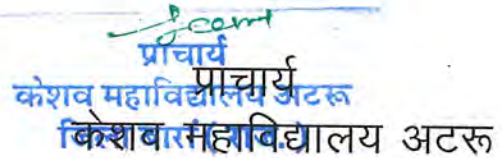 प्राचार्य
केशव महाविद्यालय अटरू
प्राचार्य
केशव महाविद्यालय अटरू